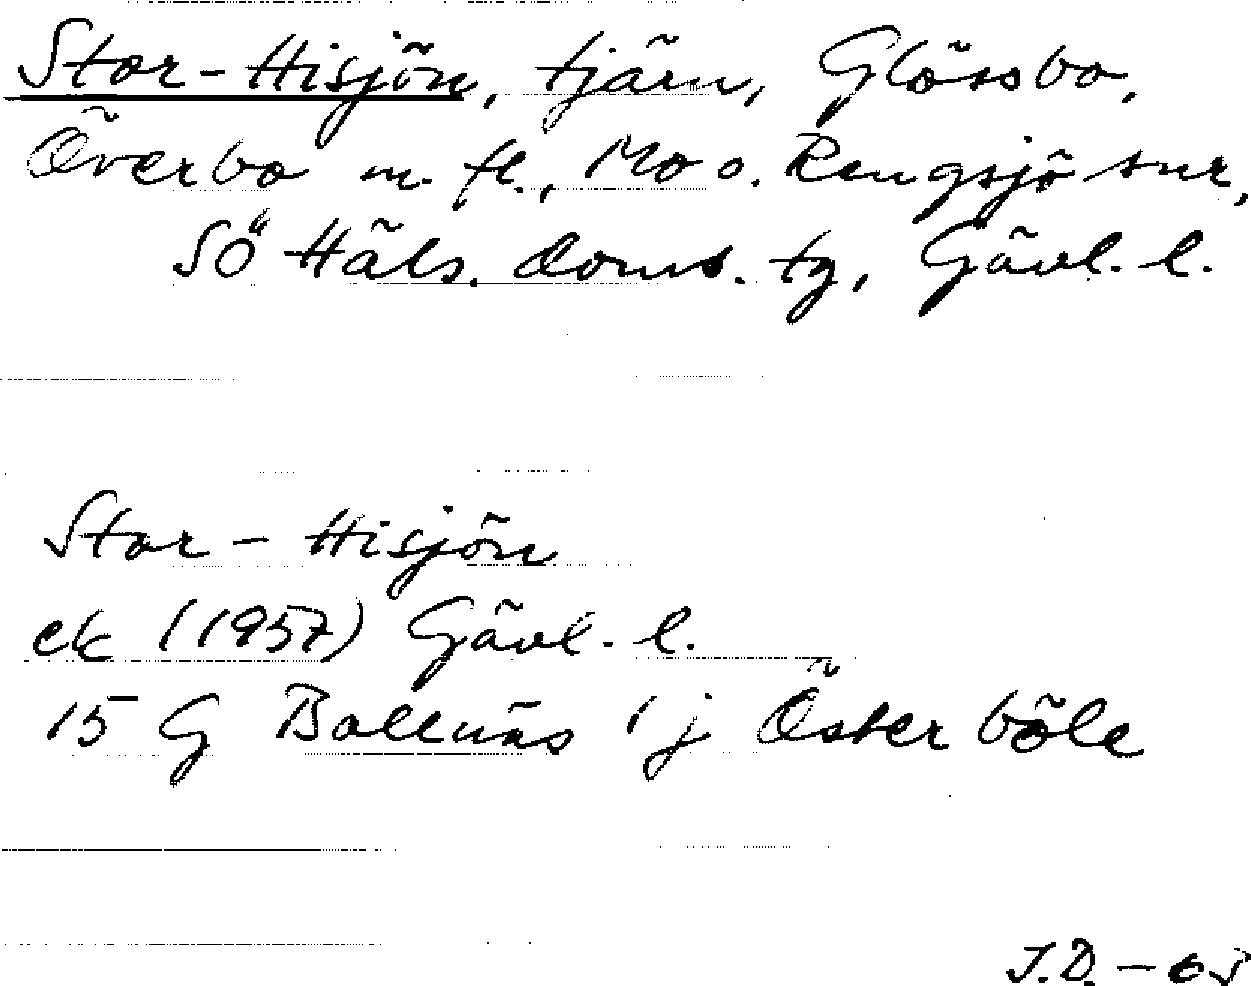 Stor-Hisjön, tjärn, Glössbo,
Överbo m. fl., Mo o. Rengsjö snr,
SÖ Häls. doms. tg, Gävl. l.
Stor-Hisjön
ek (1957) Gävl. l.
15 G Bollnäs 1j Österböle
J.D. - 65